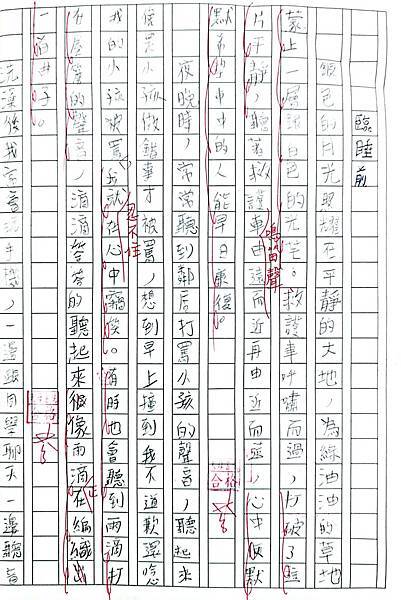 臨睡前
銀色的月光照耀在平靜的大地,為綠油油的草地
蒙上一層銀白色的光芒。救護車呼嘯而過,打破了這
片平靜,聽著救護車由遠而近再由近而遠,心中便默
鳴笛聲
默希望車中的人能早日康復。
合格
夜晚時,常常聽到鄰居打罵小孩的聲音,聽起來
像是小孩做錯事才被罵,想到早上撞到我不道歉還唸
我的小孩被罵,我就在心中竊笑。有時也會聽到雨滴打
忍不住
在屋簷的聲音,滴滴答答的聽起來很像雨滴在編織出
正
一首曲子。
合格
洗澡後我常玩手機,一邊跟同學聊天一邊聽音